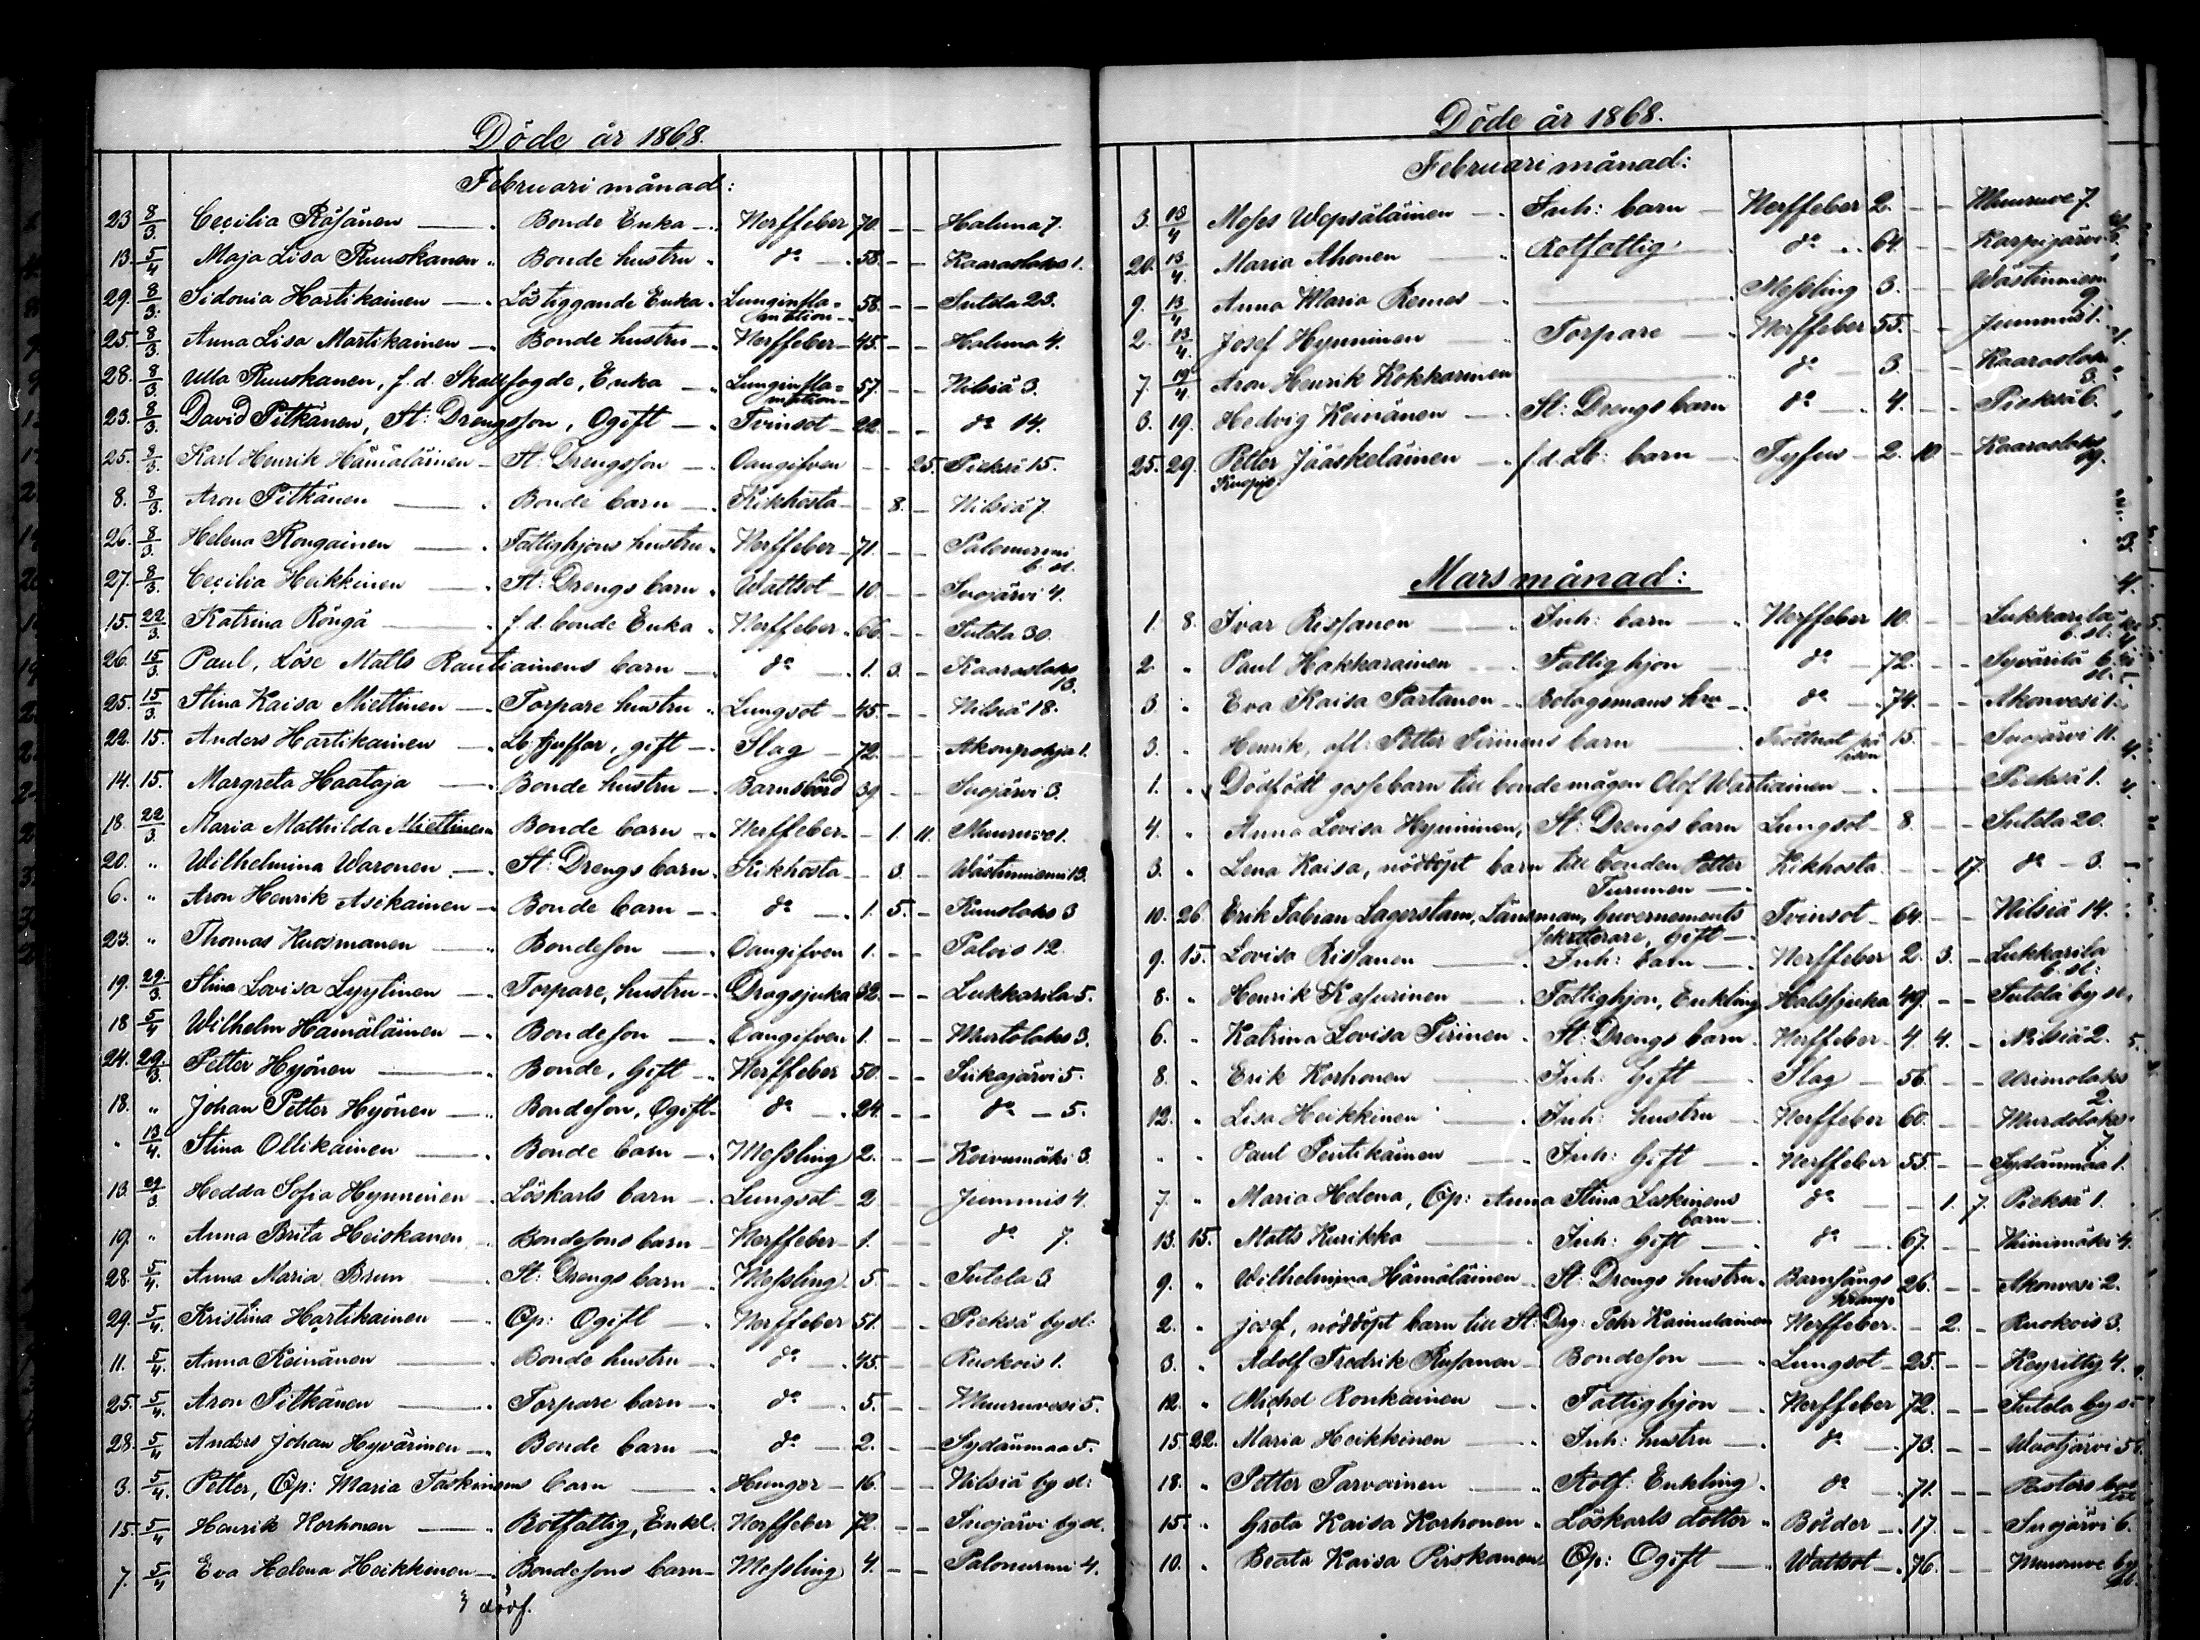 Döde år 1868.
Februari månad:
23 8/3. Cecilia Räsänen — Bonde Enka — Nerffeber 70. – – Haluna 7.
13. 5/4 Maja Lisa Ruuskanen Bonde hustru do — 53. – – Kaaraslaks 1.
29. 8/3. Sidonia Hartikainen — Löstiggande Enka Lunginfla= 58. – – Sutela 23.
mation
25. 8/3. Anna Lisa Martikainen — Bonde hustru — Nerffeber 45. – – Haluna 4.
28. 8/3. Ulla Ruuskanen, f.d. Skallfogde, Enka — Lunginfla= 57. – – Nilsiä 3.
mation
23. 8/3. David Pitkänen, St: Drengsson, Ogift — Tvinsot 22. – – do 14.
25. 8/3. Karl Henrik Hämäläinen St: Drengsson — Oangifven – – 25. Pieksä 15.
8. 8/3. Aron Pitkänen — Bonde barn — Kikhosta – 8. – Nilsiä 7.
26. 8/3. Helena Rongainen — Fattighjons hustru Nerffeber 71. – – Palonurmi
b. st.
27. 8/3. Cecilia Heikkinen — St: Drengs barn Wattsot 10. – – Suojärvi 4.
15. 22/3. Katrina Röngä — f.d. bonde Enka Nerffeber 66. – – Sutela 30.
26. 15/3. Paul, Löse Matts Rautiainens barn — do — 1. 3. – Kaaraslaks
13.
25. 15/3. Stina Kaisa Miettinen — Torpare hustru Lungsot 45. – – Nilsiä 18.
22. 15. Anders Hartikainen — Lb: gift — Slag — 72. – – Akonpohja 1.
14. 15. Margreta Haataja — Bonde hustru — Barnsbörd 39. – – Suojärvi 3.
18. 22/3 Maria Mathilda Miettinen Bonde barn — Nerffeber – 1. 11. Muuruve 1.
20. " Wilhelmina Waronen — St: Drengs barn Kikhosta – 3. – Wästinniemi 13.
6. " Aron Henrik Asikainen — Bonde barn — do — 1. 5. – Ruuslaks 3
23. " Thomas Kuosmanen — Bondeson — Oangifven 1. – – Palois 12.
19. 29/3. Stina Lovisa Lyytinen — Torpare, hustru Dragsjuka 32. – – Lukkarila 5.
18 5/4 Wilhelm Hämäläinen — Bondeson — Oangifven 1. – – Murtolaks 3.
24. 29/3. Petter Hyönen — Bonde, Gift — Nerffeber 50. – – Siikajärvi 5.
18. " Johan Petter Hyönen — Bondeson, Ogift do — 24. – – do – 5.
" 13/4. Stina Ollikainen — Bonde barn — Messling 2. – – Koivumäki 3.
13. 29/3 Hedda Sofia Hynninen Löskarls barn — Lungsot 2 – – Jummis 4.
19. " Anna Brita Heiskanen Bondesons barn Nerffeber 1. – – do 7.
28. 5/4. Anna Maria Brun — St: Drengs barn Messling 5 – – Sutela 3
29. 5/4. Kristina Hartikainen — Qp: Ogift — Nerffeber 51. – – Pieksä by st:
11. 5/4 Anna Keinänen — Bonde hustru — do — 45. – – Ruokois 1.
25. 5/4. Aron Pitkänen — Torpare barn — do — 5. – – Muuruvesi 5.
28. 5/4. Anders Johan Hyvärinen — Bonde barn — do — 2. – – Sydänmaa 5.
3. 5/4. Petter, Qp: Maria Taskinens barn — Hunger — 16. – – Nilsiä by st:
15. 5/4 Henrik Korhonen — Rotfattig, Enkl. Nerffeber 72. – – Suojärvi by st.
7. 5/4 Eva Helena Heikkinen Bondesons barn Messling 4. – – Palonurmi 4.
3 dödf.
Döde år 1868.
Februari månad:
3. 13/4 Moses Wepsäläinen — Inh: barn — Nerffeber 2. – – Muuruve 7.
20. 13/4. Maria Ahonen — Rotfattig — do 64. – – Karpijärvi
9. 13/4 Anna Maria Remes — Messling 3. – – Wästinniemi
9
2. 13/4. Josef Hynninen — Torpare — Nerffeber 55. – – Jummis 1.
7. 19/4 Aron Henrik Kokkarinen — do — 3. – – Kaaraslaks
3.
3. 19. Hedvig Keinänen — St: Drengs barn do — 4. – – Pieksä 6.
25. 29. Petter Jääskeläinen — f.d. Lb: barn — Tyfus — 2. 10 – Kaaraslaks
Kuopio 19.
Mars månad:
1. 8. Ivar Rissanen — Inh: barn — Nerffeber 10. – – Lukkarila
b. st:
2. " Paul Hakkarainen — Fattighjon — do — 72. – – Syvärilä b.
st.
3. " Eva Kaisa Partanen Bolagsmans h:u do — 74. – – Akonvesi 1.
3. " Henrik, afl: Petter Pirinens barn — 15. – – Suojärvi 11.
1. " Dödfödt gossebarn till bondemågen Olof Wartiainen — Pieksä 1.
4. " Anna Lovisa Hynninen, St: Drengs barn Lungsot 8. – – Sutela 20.
3. " Lena Kaisa, nöddöpt barn till bonden Petter Kikhosta – – 17. do – 3.
Turunen —
10. 26. Erik Fabian Lagerstam, Länsman, Guvernements Tvinsot 64. – – Nilsiä 14.
sekreterare, Gift —
9. 15. Lovisa Rissanen — Inh: barn — Nerffeber 2. 3. – Lukkarila
b. st:
8. " Henrik Kasurinen — Fattighjon, Enkling Halssjuka 49. – – Sutela by st.
6. " Katrina Lovisa Pirinen St: Drengs barn Nerffeber 4. 4. – Nilsiä 2.
8. " Erik Korhonen — Inh: Gift — Slag — 56. – – Urimolaks
2.
12. " Lisa Heikkinen — Inh: hustru — Nerffeber 60. – – Murdolaks
7.
" " Paul Pentikäinen — Inh: Gift — Nerffeber 55. – – Sydänmaa 1.
7. " Maria Helena, Qp: Anna Stina Leskinens do — – 1. 7. Pieksä 1.
barn —
13. 15. Matts Kurikka — Inh: Gift — do — 67. – – Kinimäki 4.
9. " Wilhelmina Hämäläinen St: Drengs hustru Barnsängs 26. – – Akonvesi 2.
kramp
2. " Josef, nöddöpt barn till St: Drg: Pehr Kainulainen Nerffeber – 2. – Ruokois 3.
3. " Adolf Fredrik Rusanen Bondeson — Lungsot 25. – – Keyritty 4.
12. " Michel Ronkainen — Fattighjon — Nerffeber 72. – – Sutela by s.
15. 22. Maria Heikkinen — Inh: hustru — do — 73. – – Wuotjärvi 5
18. " Petter Tarvainen — Rotf: Enkling do — 71. – –
15. " Greta Kaisa Korhonen Löskarls dotter Bölder 17. – – Suojärvi 6.
10. " Beata Kaisa Pirskanens Qp: Ogift — Wattsot — 76. – – Muuruve by
st.